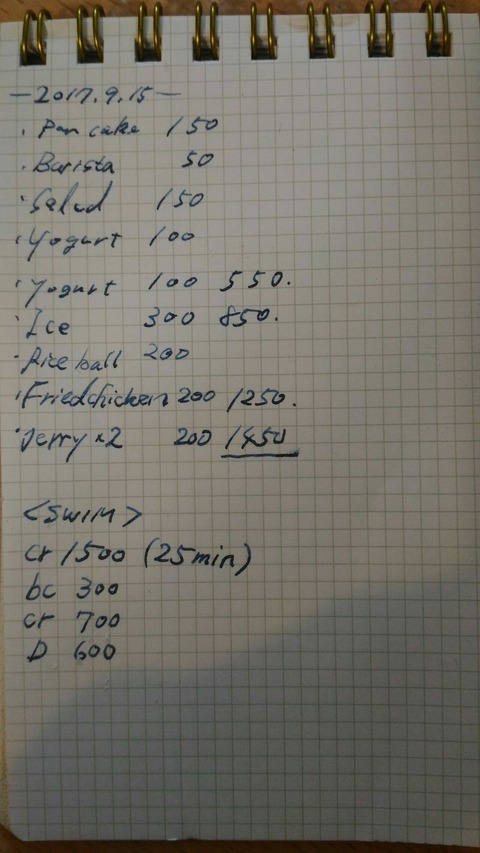 —2017.9.15—
· Pancake 150
· Barista 50
· Salad 150
· Yogurt 100
· Yogurt 100 550.
· Ice 300 850.
· Rice ball 200
· Friedchicken 200 1250.
· Jerry ×2 200 1450
<SWIM>
cr 1500 (25min)
bc 300
cr 700
D 600